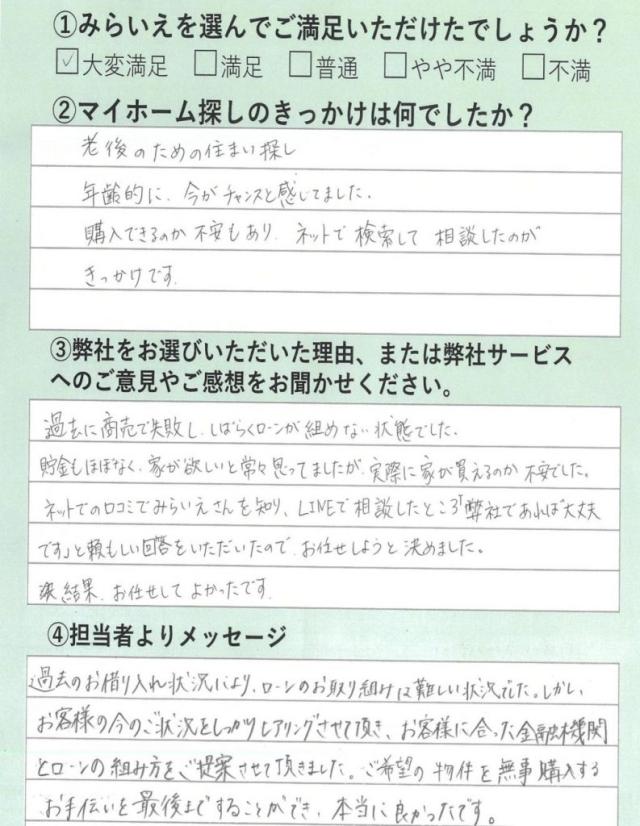 ①みらいえを選んでご満足いただけたでしょうか？
☑大変満足 □満足 □普通 □やや不満 □不満
②マイホーム探しのきっかけは何でしたか？
老後のための住まい探し
年齢的に、今がチャンスと感じてました。
購入できるのか不安もあり、ネットで検索して相談したのが
きっかけです。
③弊社をお選びいただいた理由、または弊社サービス
へのご意見やご感想をお聞かせください。
過去に商売で失敗し、しばらくローンが組めない状態でした。
貯金もほぼなく、家が欲しいと常々思ってましたが、実際に家が買えるのか不安でした。
ネットでの口コミでみらいえさんを知り、LINEで相談したところ「弊社であれば大丈夫
です」と頼もしい回答をいただいたので、お任せしようと決めました。
結果、お任せしてよかったです。
④担当者よりメッセージ
過去のお借り入れ状況により、ローンのお取り組みは難しい状況でした。しかし、
お客様の今のご状況をしっかりヒアリングさせて頂き、お客様に合った金融機関
とローンの組み方をご提案させて頂きました。ご希望の物件を無事購入する
お手伝いを最後まですることができ、本当に良かったです。